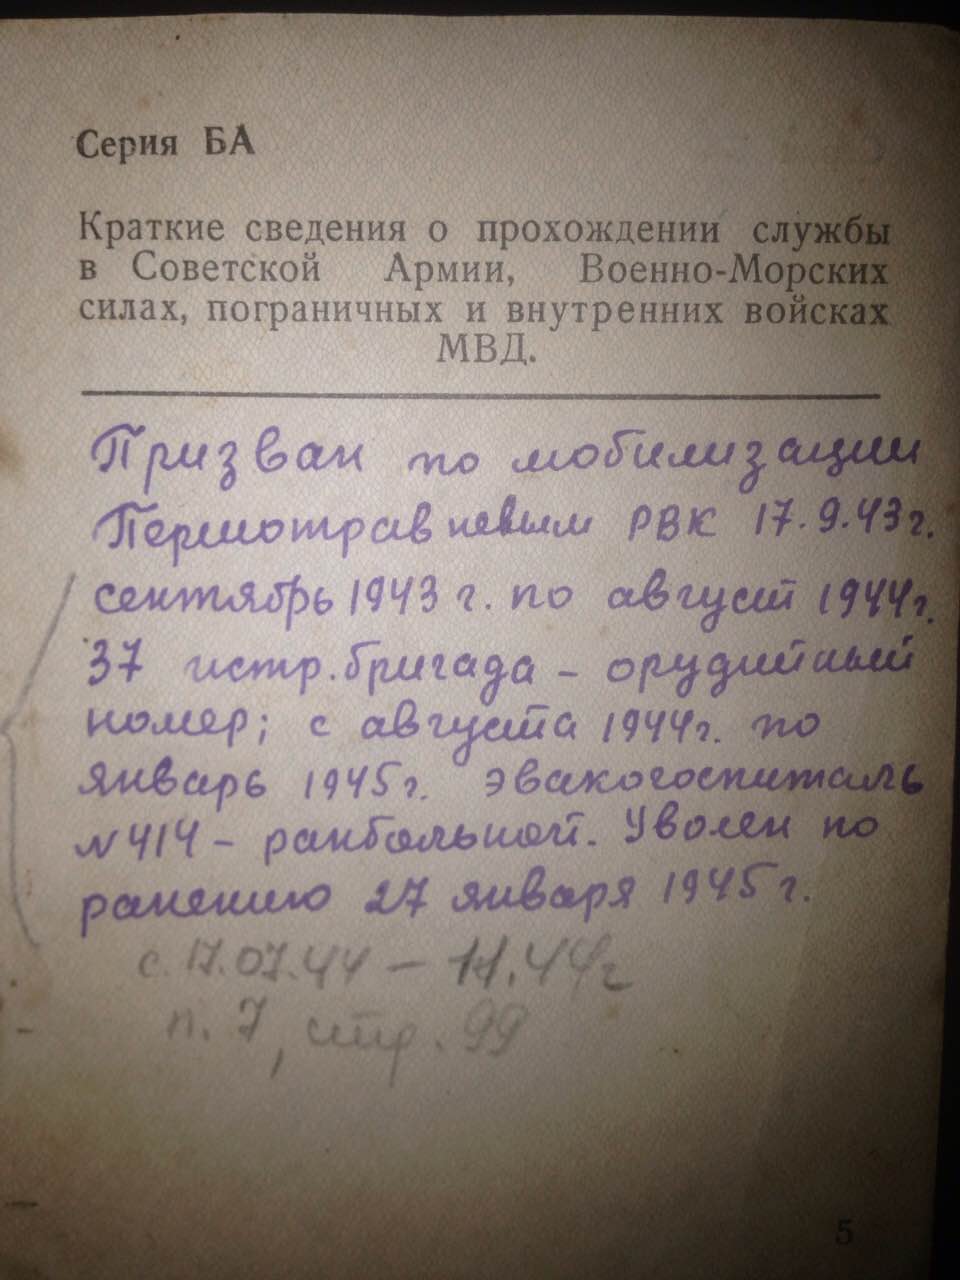 Серия БА
Краткие сведения о прохождении службы
в Советской Армии, Военно-Морских
силах, пограничных и внутренних войсках
МВД.
Призван по мобилизации
Першотравневым РВК 17.9.43г.
сентябрь 1943 г. по август 1944г.
37 истр. бригада – орудийный
номер; с августа 1944г. по
январь 1945г. эвакогоспиталь
№ 414 – ранбольной. Уволен по
ранению 27 января 1945 г.
с. 17.07.44 – 11.44г
п. 7, стр. 99
5